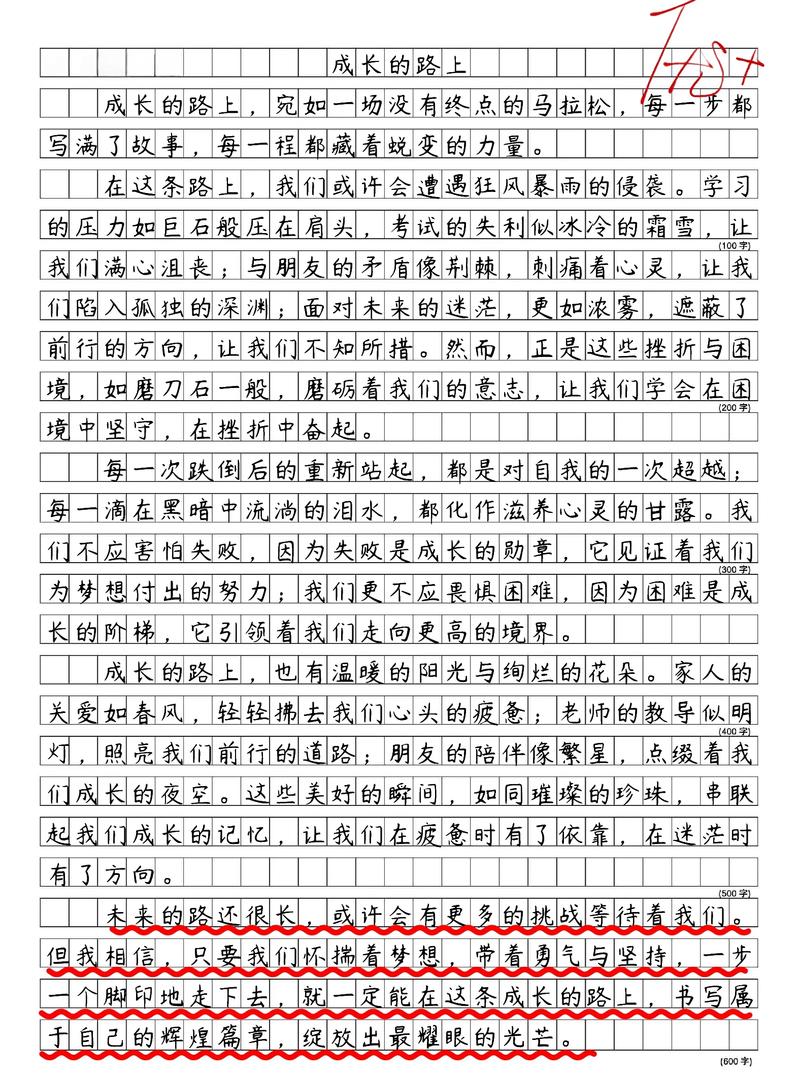 成长的路上
成长的路上，宛如一场没有终点的马拉松，每一步都
写满了故事，每一程都藏着蜕变的力量。
在这条路上，我们或许会遭遇狂风暴雨的侵袭。学习
的压力如巨石般压在肩头，考试的失利似冰冷的霜雪，让
(100字)
我们满心沮丧；与朋友的矛盾像荆棘，刺痛着心灵，让我
们陷入孤独的深渊；面对未来的迷茫，更如浓雾，遮蔽了
前行的方向，让我们不知所措。然而，正是这些挫折与困
境，如磨刀石一般，磨砺着我们的意志，让我们学会在困
(200字)
境中坚守，在挫折中奋起。
每一次跌倒后的重新站起，都是对自我的一次超越；
每一滴在黑暗中流淌的泪水，都化作滋养心灵的甘露。我
们不应害怕失败，因为失败是成长的勋章，它见证着我们
(300字)
为梦想付出的努力；我们更不应畏惧困难，因为困难是成
长的阶梯，它引领着我们走向更高的境界。
成长的路上，也有温暖的阳光与绚烂的花朵。家人的
关爱如春风，轻轻拂去我们心头的疲惫；老师的教导似明
(400字)
灯，照亮我们前行的道路；朋友的陪伴像繁星，点缀着我
们成长的夜空。这些美好的瞬间，如同璀璨的珍珠，串联
起我们成长的记忆，让我们在疲惫时有了依靠，在迷茫时
有了方向。
(500字)
未来的路还很长，或许会有更多的挑战等待着我们。
但我相信，只要我们怀揣着梦想，带着勇气与坚持，一步
一个脚印地走下去，就一定能在这条成长的路上，书写属
于自己的辉煌篇章，绽放出最耀眼的光芒。
(600字)